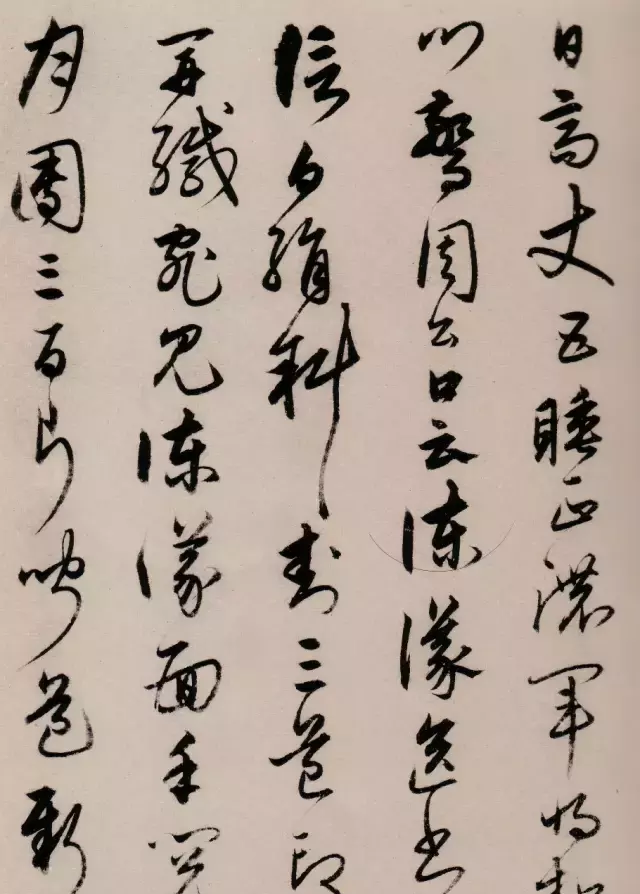 日高丈五睡正濃軍將
門驚周公口云諫議送書
信白絹斜封三道印
開緘宛見諫議面手閱
月團三百片聞道新